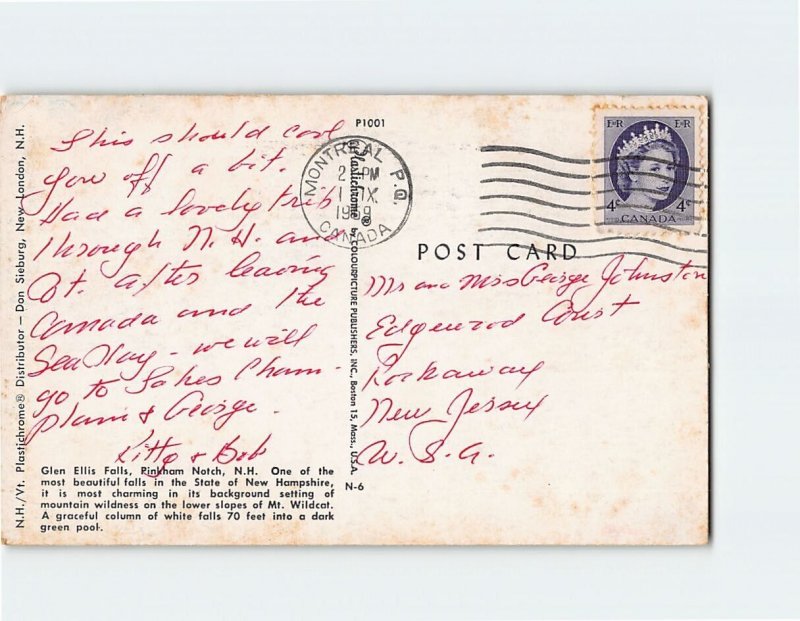 This should cool
you off a bit.
Had a lovely trip
through N.H. and
Vt. after leaving
Canada and the
Seaway - we will
go to Lakes Cham-
plain & George.
Kitty & Bob
Glen Ellis Falls, Pinkham Notch, N.H. One of the
most beautiful falls in the State of New Hampshire,
it is most charming in its background setting of
mountain wildness on the lower slopes of Mt. Wildcat.
A graceful column of white falls 70 feet into a dark
green pool.
N.H./Vt. Plastichrome® Distributor — Don Sieburg, New London, N.H.
P1001
Plastichrome® by COLOURPICTURE PUBLISHERS, INC., Boston 15, Mass., U.S.A.
N-6
MONTREAL P.Q.
PM
IX
CANADA
E II R E II R
4¢ 4¢
CANADA
POST CARD
Mr and Mrs George Johnston
Edgewood Court
Rockaway
New Jersey
U.S.A.